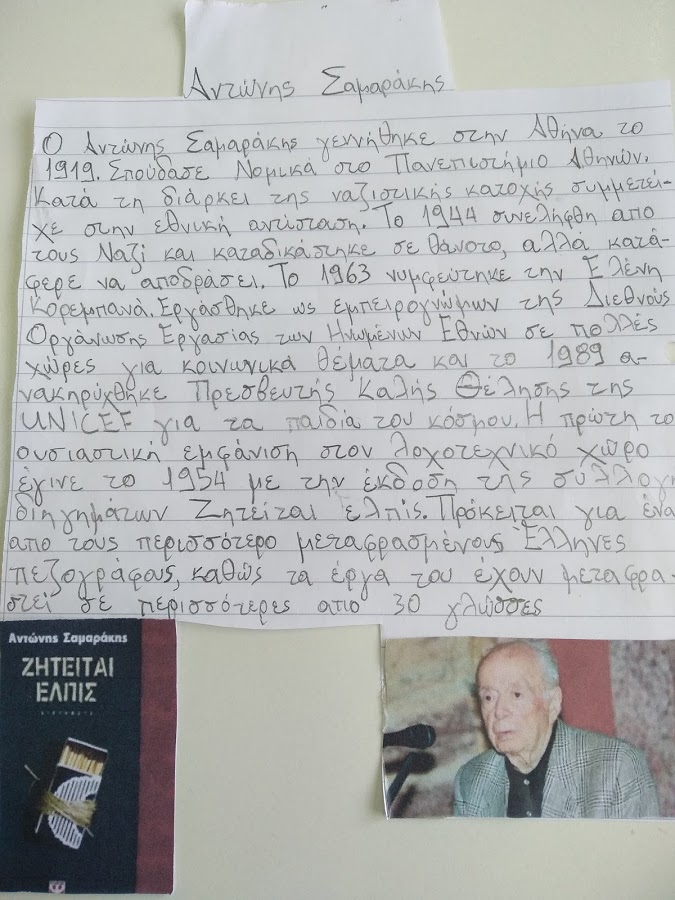 Αντώνης Σαμαράκης
Ο Αντώνης Σαμαράκης γεννήθηκε στην Αθήνα το
1919. Σπούδασε Νομικά στο Πανεπιστήμιο Αθηνών.
Κατά τη διάρκει της ναζιστικής κατοχής συμμετεί-
χε στην εθνική αντίσταση. Το 1944 συνελήφθη απο
τους Ναζί και καταδικάστηκε σε θάνατο, αλλά κατά-
φερε να αποδράσει. Το 1963 νυμφεύτηκε την Ελένη
Κορεμπανά. Εργάσθηκε ως εμπειρογνώμων της Διεθνούς
Οργάνωσης Εργασίας των Ηνωμένων Εθνών σε πολλές
χώρες για κοινωνικά θέματα και το 1989 α-
νακηρύχθηκε Πρεσβευτής Καλής Θέλησης της
UNICEF για τα παιδία του κόσμου. Η πρώτη το
ουσιαστική εμφάνιση στον λοχοτεχνικό χώρο
έγινε το 1954 με την έκδοση της συλλογή
διηγημάτων Ζητείται ελπίς. Πρόκειται για ένα
απο τους περισσότερο μεταφρασμένους Έλληνες
πεζογράφους, καθώς τα έργα του έχουν μεταφρα-
στεί σε περισσότερες απιο 30 γλώσσες
Αντώνης Σαμαράκης
ΖΗΤΕΙΤΑΙ
ΕΛΠΙΣ
ΔΙΗΓΗΜΑΤΑ